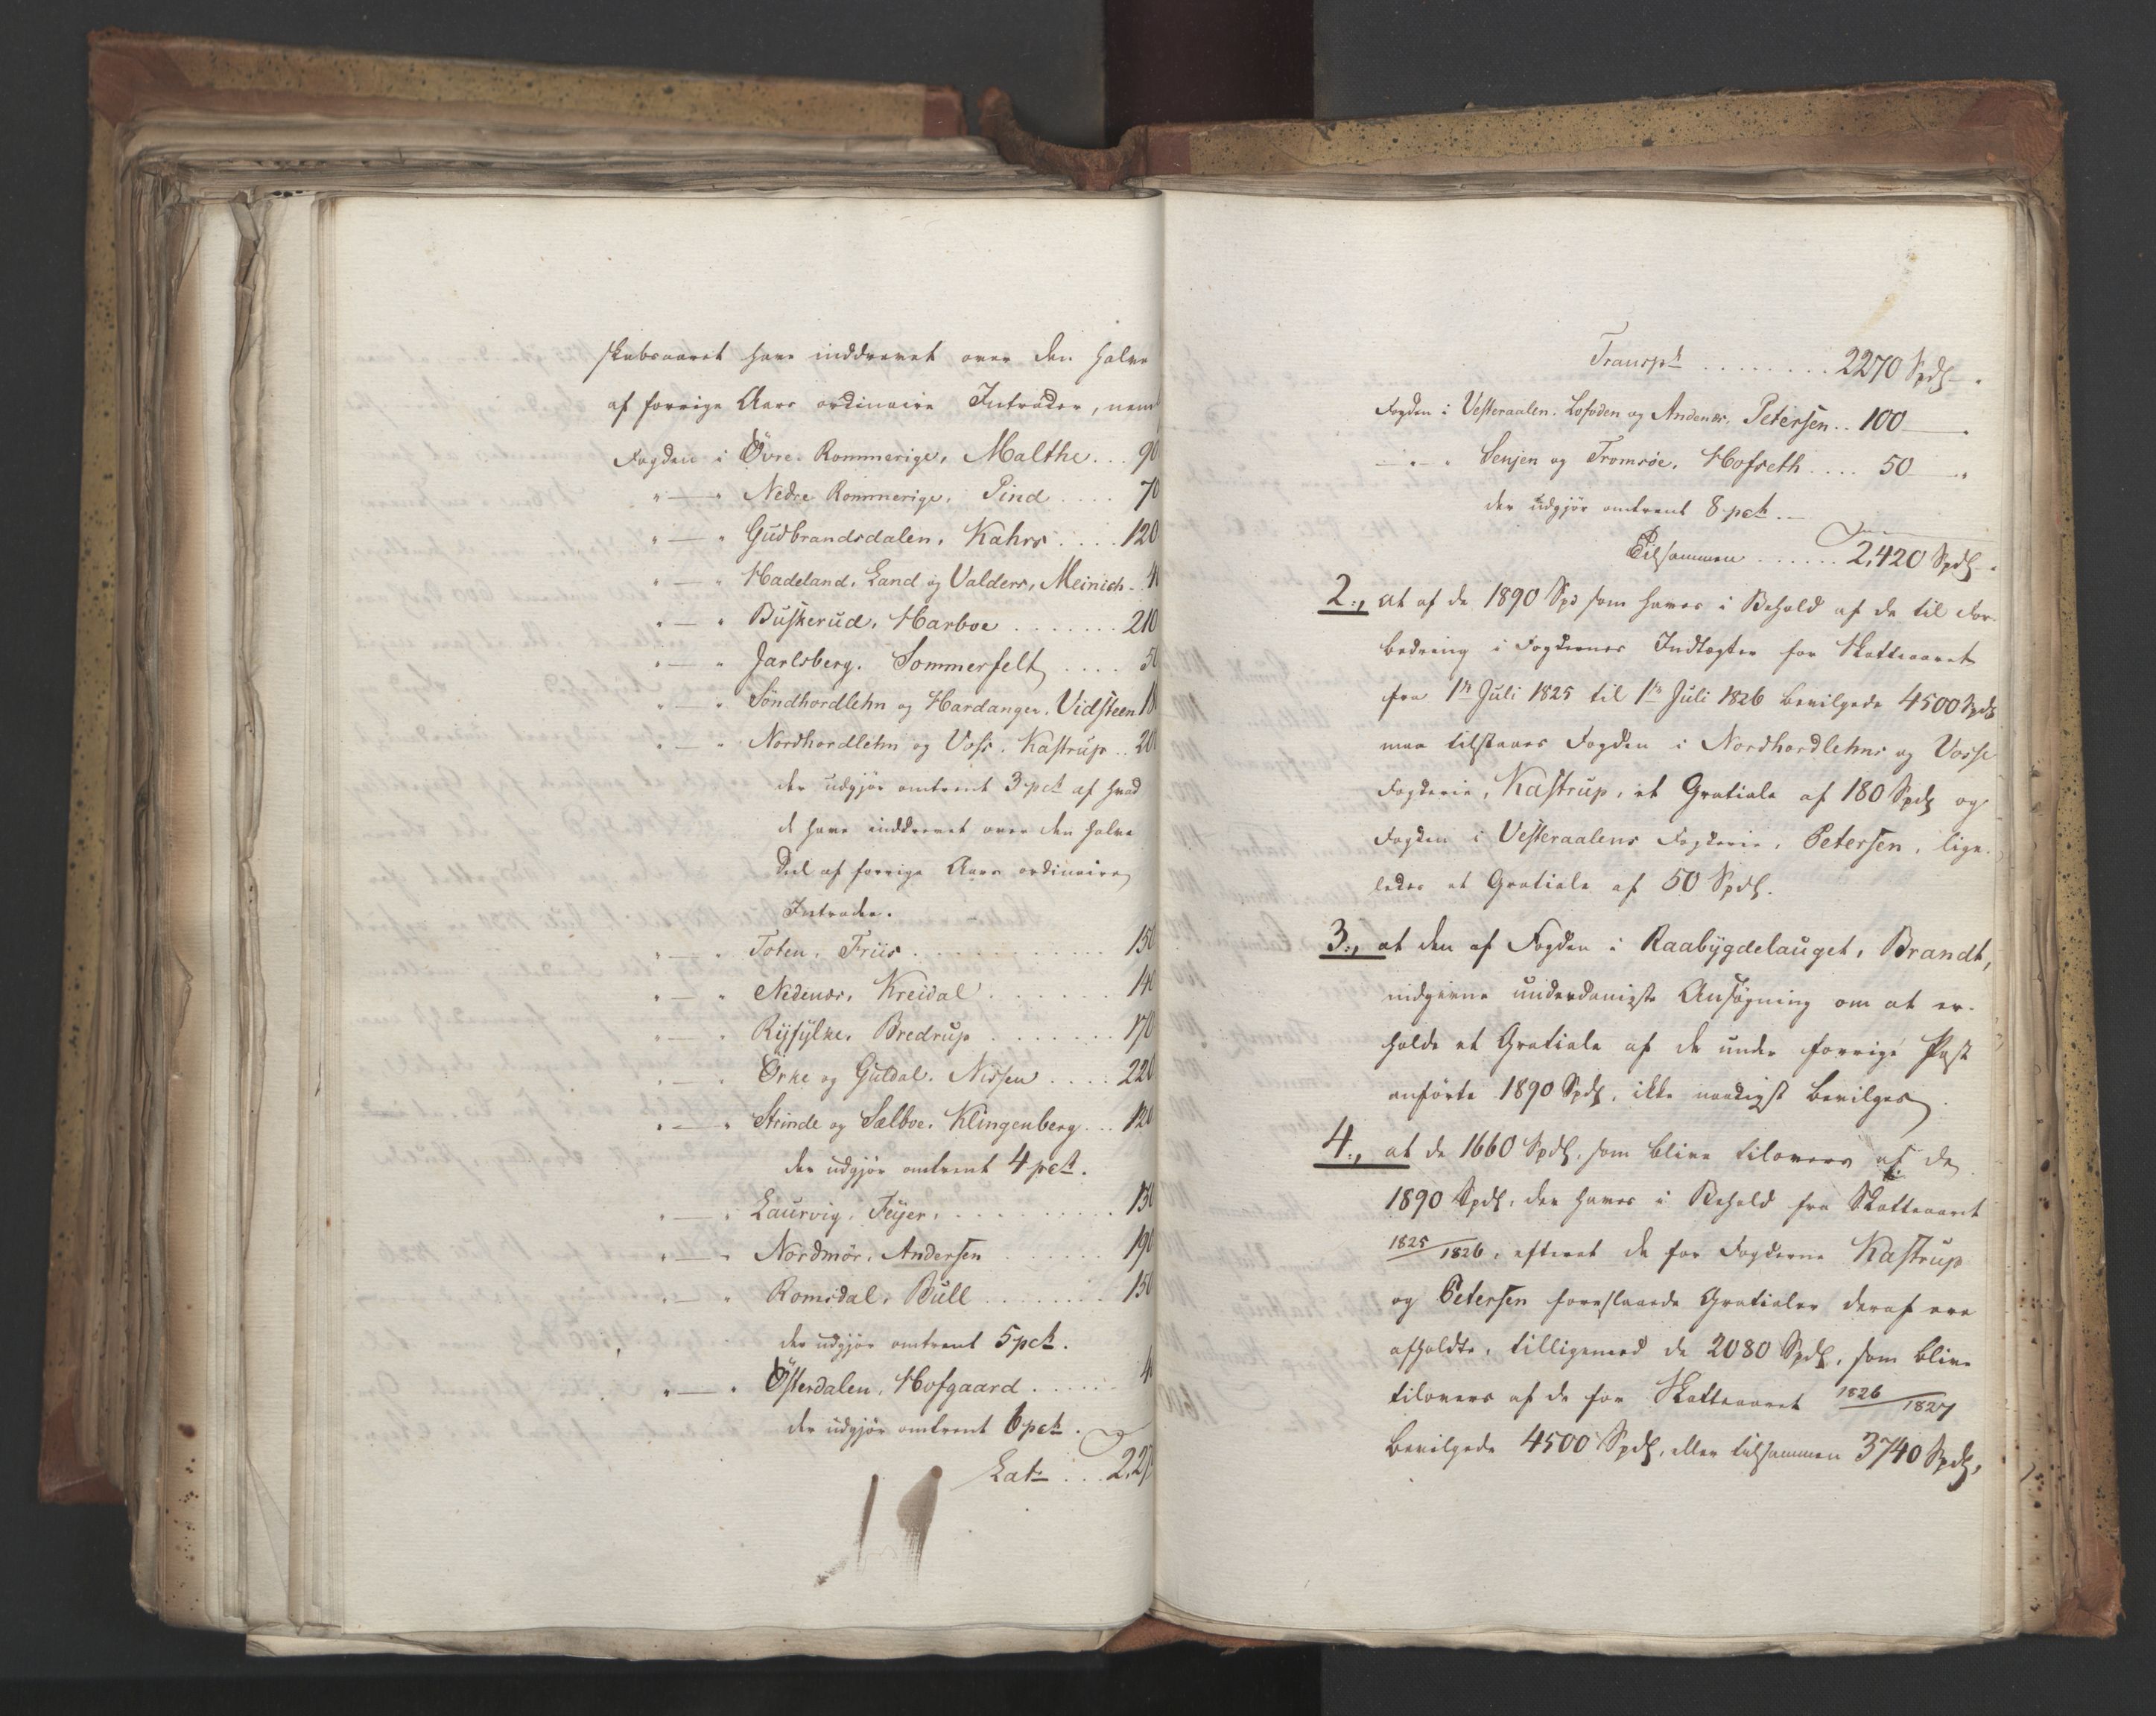 skabsaaret have inddrevet over den halve
af forrige Aars ordinaire Intrader, neml
Fogden i Övre Rommerige, Malthe . . . 90
" — " Nedre Rommerige, Pind . . . . 70
" — " Gudbrandsdalen, Kahrs . . . . 120
" — " Hadeland, Land og Valders, Meinich . 4
" — " Buskerud, Harboe . . . . . . . 210
" — " Jarlsberg, Sommerfelt . . . . 50
" — " Söndhordlehn og Hardanger, Vidsteen 18
" — " Nordhordlehn og Voss, Kastrup . . 20
der udgjör omtrent 3 pct af hvad
de have inddrevet over den halve
Deel af forrige Aars ordinaire
Intrader.
" — " Toten, Friis . . . . . . . . . . . 150
" — " Nedenæs, Kreidal . . . . . . . 140
" — " Ryfylke, Bredrup . . . . . . . 170
" — " Örke og Guldal, Nissen . . . . 220
" — " Strinde og Sælboe, Klingenberg . . . 120
der udgjör omtrent 4 pct.
" — " Laurvig, Feyer, . . . . . . . . . 130
" — " Nordmör, Andersen . . . . . . 190
" — " Romsdal, Bull . . . . . . . . 150
der udgjör omtrent 5 pct.
" — " Österdalen, Hofgaard . . . . . . 4
der udgjör omtrent 6 pct.
Lat. . . . 2,27
Transpt . . . . . . . . 2270 Spdl.
Fogden i Vesteraalen, Lofoden og Andenæs, Petersen . . 100 —
— " — Senjen og Tromsöe, Hofseth . . . . 50 —
der udgjör omtrent 8 pct. —
Tilsammen . . . . . . 2,420 Spdl.
2., at af de 1890 Spd som haves i Behold af de til For-
bedring i Fogdernes Indtægter for Skatteaaret
fra 1ste Juli 1825 til 1ste Juli 1826 bevilgede 4500 Spdl
maa tilstaaes Fogden i Nordhordlehns og Vosse
Fogderie, Kastrup, et Gratiale af 180 Spdl og
Fogden i Vesteraalens Fogderie, Petersen, lige-
ledes et Gratiale af 50 Spdl.
3., at den af Fogden i Raabygdelauget, Brandt,
indgivne underdanigste Ansögning om at er-
holde et Gratiale af de under forrige Post
anförte 1890 Spdl, ikke naadigst bevilges.
4., at de 1660 Spdl, som blive tilovers af de
1890 Spdl, der haves i Behold fra Skatteaaret
1825/1826, efterat de for Fogderne Kastrup
og Petersen foreslaaede Gratialer deraf ere
afholdte, tilligemed de 2080 Spdl, som blive
tilovers af de for Skatteaaret 1826/1827
bevilgede 4500 Spdl, eller tilsammen 3740 Spdl,